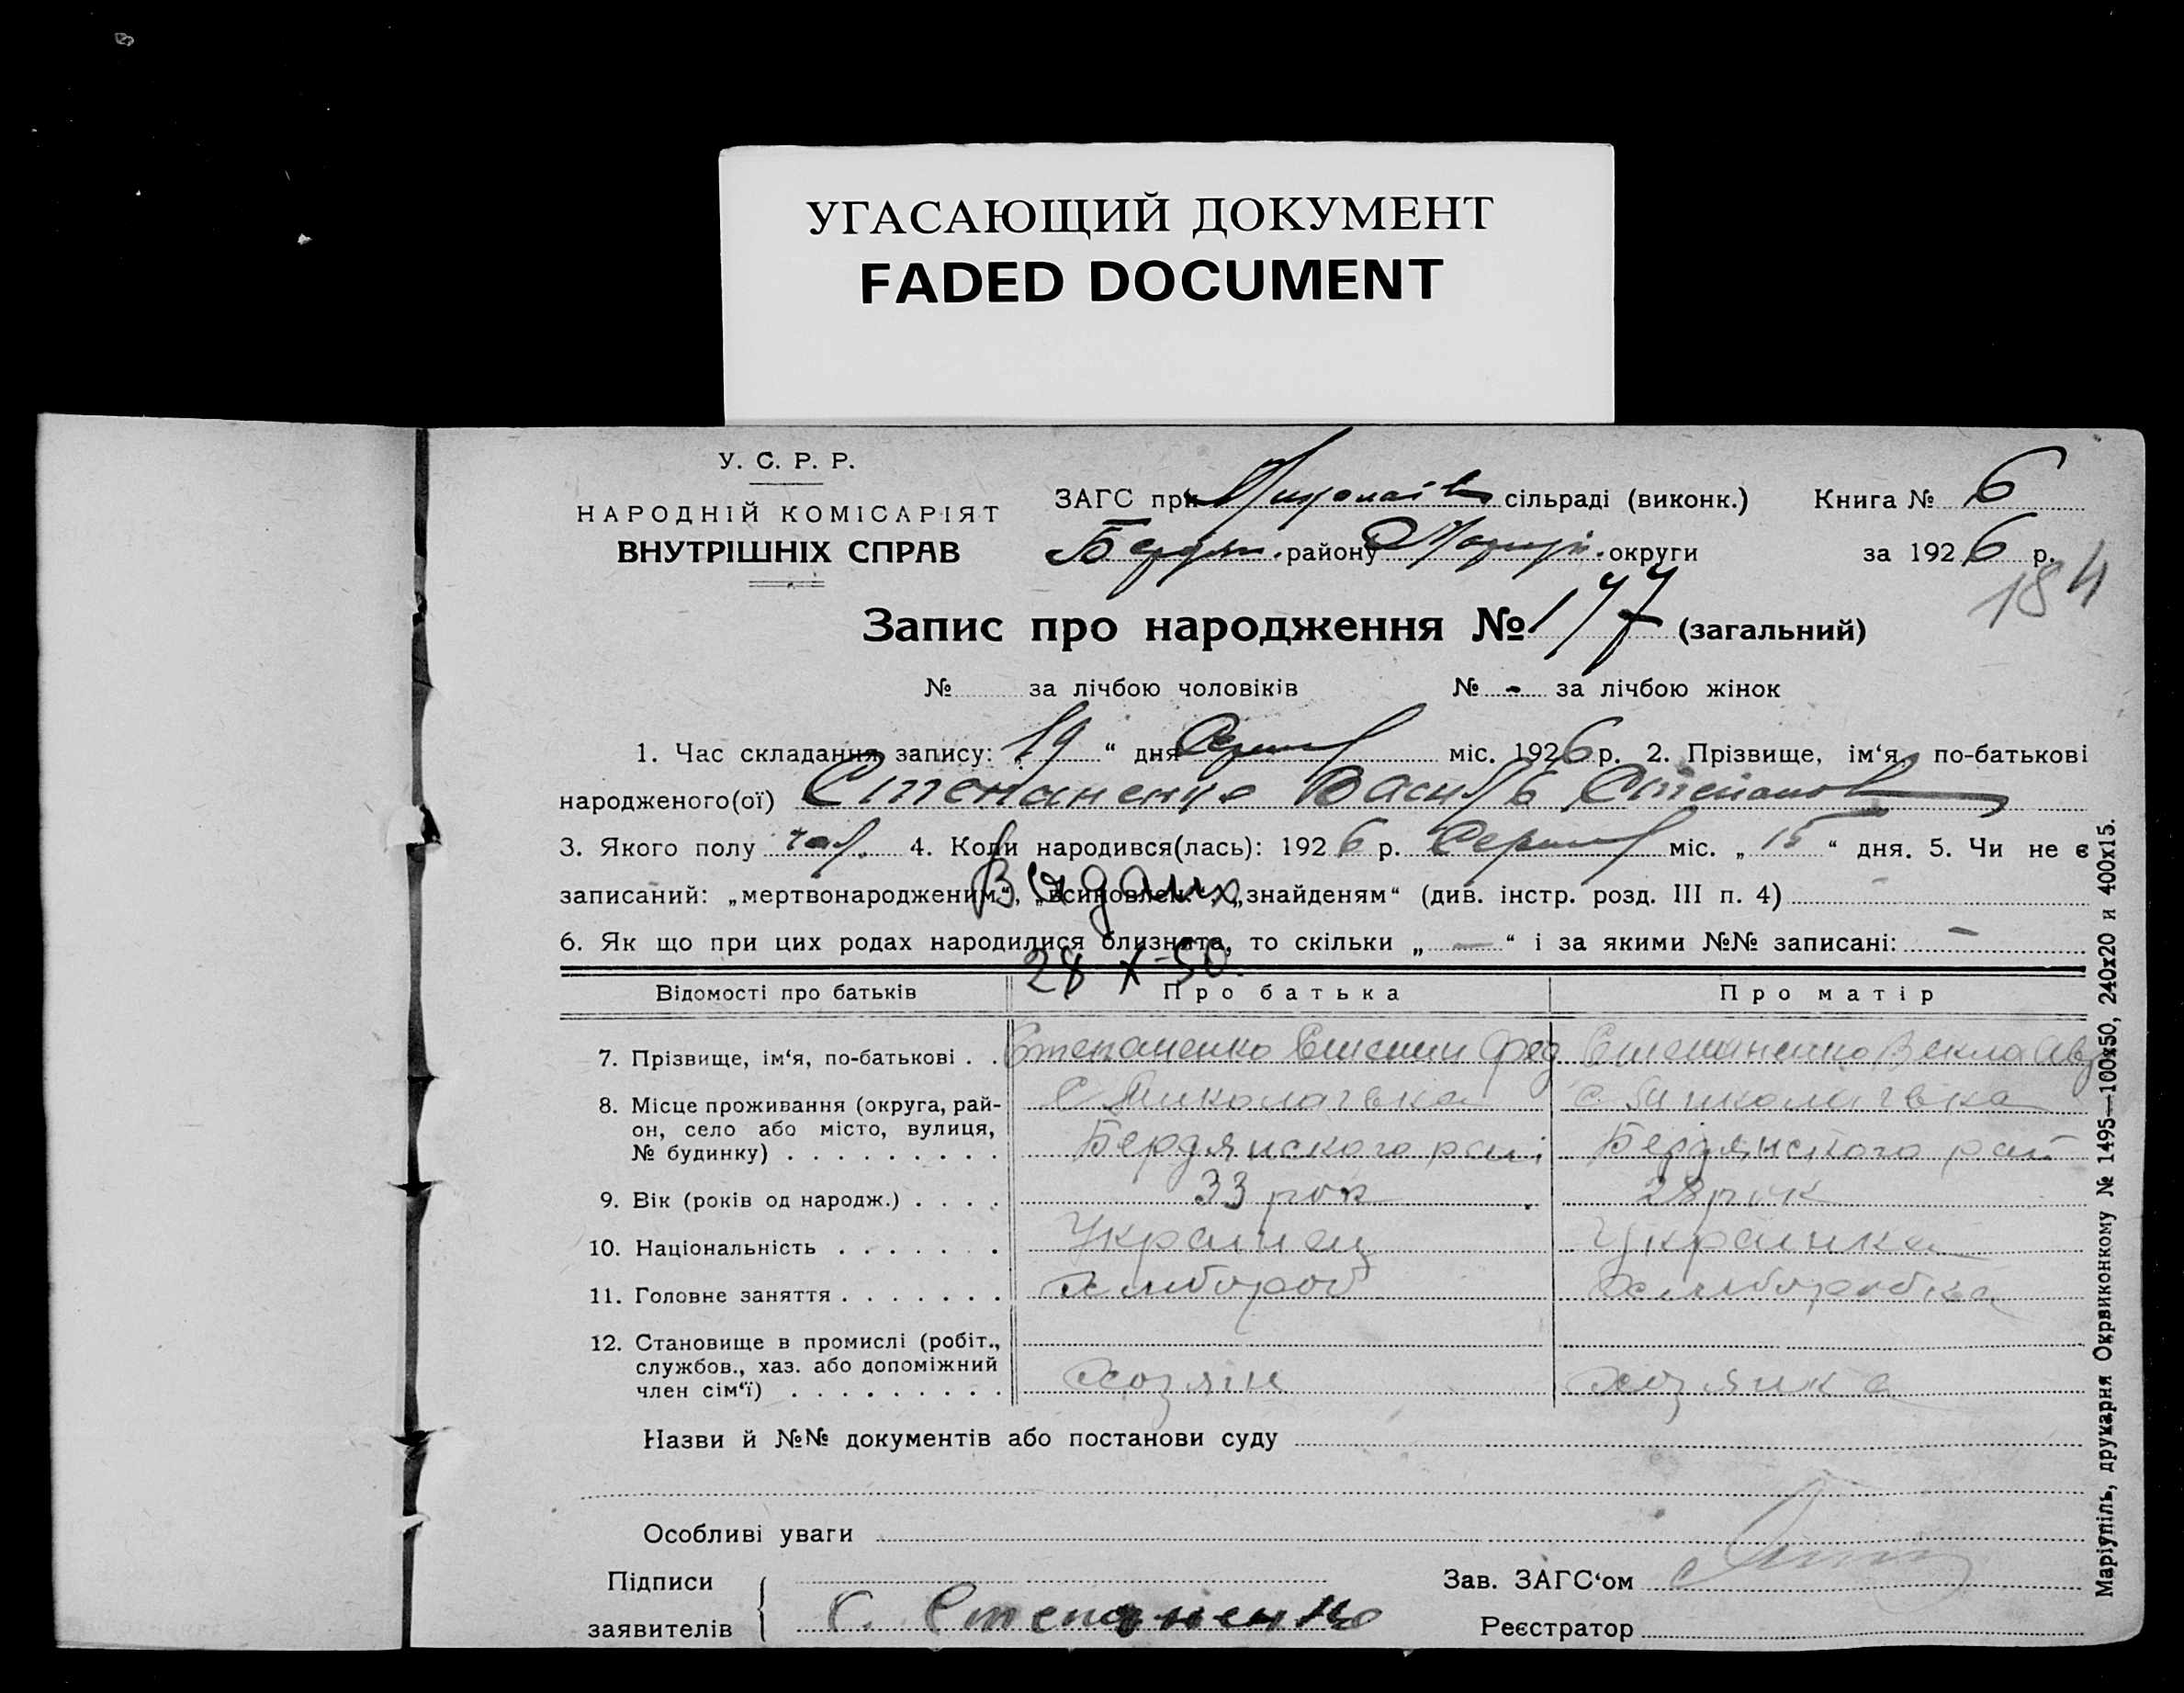 УГАСАЮЩИЙ ДОКУМЕНТ
FADED DOCUMENT
У. С. Р. Р.
НАРОДНІЙ КОМІСАРІЯТ
ВНУТРІШНІХ СПРАВ
ЗАГС при сільраді (виконк.) Книга № 6
Бердян. району округи за 1926 р.
184
Запис про народження № 177 (загальний)
№ за лічбою чоловіків № - за лічбою жінок
1. Час складання запису: „ 19 “ дня міс. 1926 р. 2. Прізвище, ім‘я, по-батькові
народженого(ої) Степаненко Василь Степанов
3. Якого полу чол. 4. Коли народився(лась): 1926 р. Серпня міс. „ 15 “ дня. 5. Чи не є
записаний: „мертвонародженим“, „всиновлен.“, „знайденям“ (див. інстр. розд. III п. 4) -
6. Як що при цих родах народилися близнята, то скільки „ — “ і за якими №№ записані: —
28 X-50.
Відомості про батьків Про батька Про матір
7. Прізвище, ім‘я, по-батькові . . Степаненко Степан Фед Степаненко Векла
8. Місце проживання (округа, рай- С. Миколаївка с. Миколаївка
он, село або місто, вулиця, Бердянского рай Бердянского рай
№ будинку) . . . . . . . . .
9. Вік (років од народж.) . . . . 33 рок 28 рок
10. Національність . . . . . . . Украинец Украинка
11. Головне заняття . . . . . . . Хлибороб Хлиборобка
12. Становище в промислі (робіт.,
службов., хаз. або допоміжний Хозяин хозяика
член сім‘ї) . . . . . . . . .
Назви й №№ документів або постанови суду
Особливі уваги
Підписи Зав. ЗАГС‘ом
заявителів С. Степаненко Реєстратор
Маріупіль, друкарня Окрвиконкому № 1495—100х50, 240х20 и 400х15.